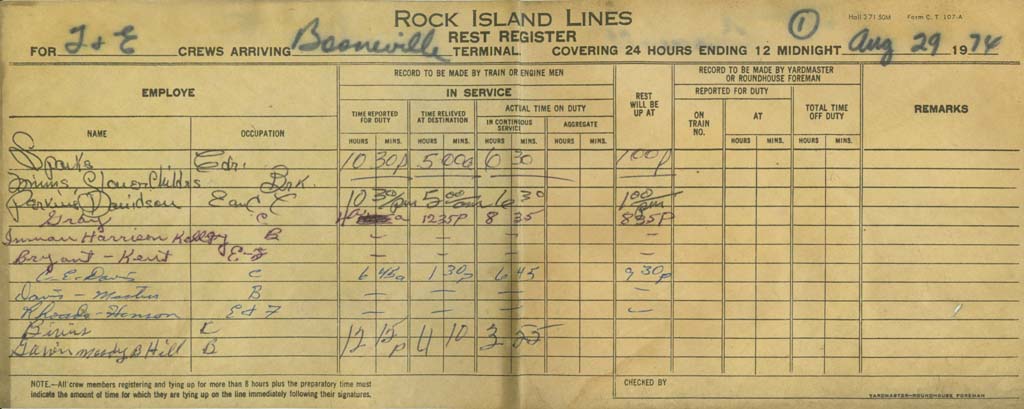 ROCK ISLAND LINES
REST REGISTER
1
Hall 2 71 50M Form C. T. 107-A
FOR T & E CREWS ARRIVING Booneville TERMINAL COVERING 24 HOURS ENDING 12 MIDNIGHT Aug 29 1974
EMPLOYE
RECORD TO BE MADE BY TRAIN OR ENGINE MEN
REST WILL BE UP AT
RECORD TO BE MADE BY YARDMASTER OR ROUNDHOUSE FOREMAN
REMARKS
IN SERVICE
REPORTED FOR DUTY
TOTAL TIME OFF DUTY
TIME REPORTED FOR DUTY
TIME RELIEVED AT DESTINATION
ACTUAL TIME ON DUTY
ON TRAIN NO.
AT
NAME OCCUPATION
IN CONTINUOUS SERVICE
AGGREGATE
HOURS MINS. HOURS MINS. HOURS MINS. HOURS MINS. HOURS MINS. HOURS MINS.
Sparks Cdr. 10 30p 5 00a 6 30 1 00p
Brk.
Perkins Davidson 10 30pm 5 00am 6 30 1 00 pm
Gray C 1235P 8 35 835P
Inman Harrison Kelley B — — — —
Bryant - Kent E-F — — — —
C. E. Davis C 6 45a 1 30p 6 45 9 30p
Davis - Masters B — — — —
Rhoads - Henson E & F — — — —
Bivins C 12 15p 4 10 3 55
Gavin Moody & Hill B
NOTE.—All crew members registering and tying up for more than 8 hours plus the preparatory time must
indicate the amount of time for which they are tying up on the line immediately following their signatures.
CHECKED BY
YARDMASTER—ROUNDHOUSE FOREMAN